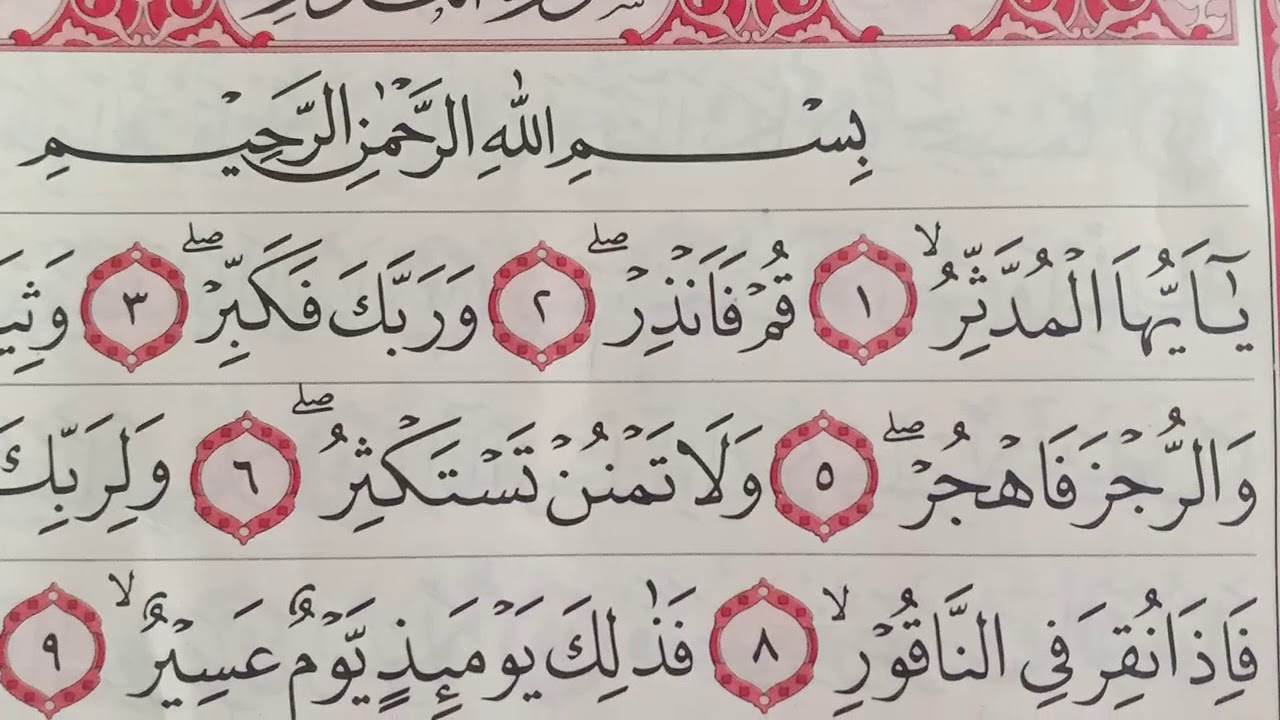 بِسْمِ اللّٰهِ الرَّحْمٰنِ الرَّحِيْمِ
يٰٓاَيُّهَا الْمُدَّثِّرُۙ ١ قُمْ فَاَنْذِرْۖ ٢ وَرَبَّكَ فَكَبِّرْۖ ٣
وَالرُّجْزَ فَاهْجُرْۖ ٥ وَلَا تَمْنُنْ تَسْتَكْثِرُۖ ٦ وَلِرَبِّكَ
فَاِذَا نُقِرَ فِى النَّاقُوْرِۙ ٨ فَذٰلِكَ يَوْمَئِذٍ يَّوْمٌ عَسِيْرٌۙ ٩